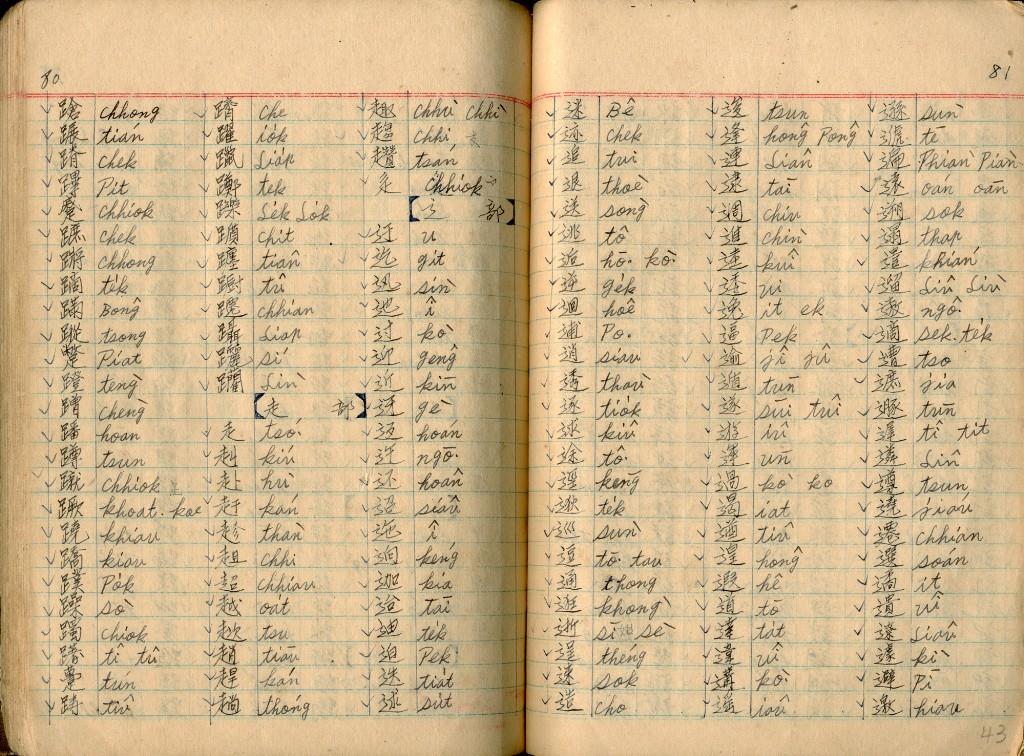 80
蹌 chhong
蹍 tián
蹐 chek
蹕 Pit
蹙 chhiok
蹠 chek
蹡 chhong
蹢 te̍k
蹣 Bông
蹤 tsong
蹩 Piat
蹬 tèng
蹭 chèng
蹯 hoan
蹲 tsun
蹴 chhiok
蹶 khoat. koe
蹺 khiau
蹻 kiau
蹼 Po̍k
躁 sò
躅 chiok
躇 tî tû
躉 tún
躊 tiû
躋 che
躍 io̍k
躐 Lia̍p
躑 tek
躒 Le̍k Lo̍k
躓 chit
躔 tiân
躕 tû
躚 chhian
躡 Liap
躧 sí
躪 Lìn
【走 部】
走 tsó.
赳 kiú
赴 hù
赶 kán
趁 thàn
趄 chhi
超 chhiau
越 oa̍t
趑 tsu
趙 tiāu
趕 kán
趟 thóng
趣 chhù chhì
趨 chhi
趲 tsán
辵 chhiok
【辶 部】
迂 u
迄 git
迅 sìn
迆 î
过 kò
迎 gêng
近 kīn
迓 gè
返 hoán
迕 ngō͘
还 hoân
迢 siâu
迤 î
迥 kéng
迦 kia
迨 tāi
迪 te̍k
迫 Pek
迭 tia̍t
述 su̍t
81
迷 Bê
迹 chek
追 tui
退 thoè
送 sòng
逃 tô
逅 hō͘. kò͘.
逆 ge̍k
迴 hoê
逋 Po͘
逍 siau
透 thaù
逐 tio̍k
逑 kiû
途 tô͘
逕 kèng
逖 te̍k
巡 sûn
逗 tō͘. tau
通 thong
逛 khòng
逝 sī sè
逞 théng
速 sok
造 cho
逡 tsun
逢 hông Pông
連 Liân
逮 tāi
週 chiu
進 chìn
逵 kuî
逶 ui
逸 it ek
逼 Pek
逾 jî jû
遁 tūn
遂 sūi tuî
遊 iû
運 ūn
過 kò ko
遏 iat
遒 tiû
遑 hông
遐 hê
道 tō
達 ta̍t
違 uî
遘 kò͘
遙 iâu
遜 sùn
遞 tē
遍 Phiàn Piàn
遠 oán oān
遡 sok
遢 thap
遣 khián
遛 Liû Liù
遨 ngô͘
適 sek. te̍k
遭 tso
遮 jia
遯 tūn
遲 tî tit
遴 Lîn
遵 tsun
遶 jiáu
遷 chhian
選 soán
遹 it
遺 uî
遼 Liâu
遽 kì
避 Pī
邀 hiau
43